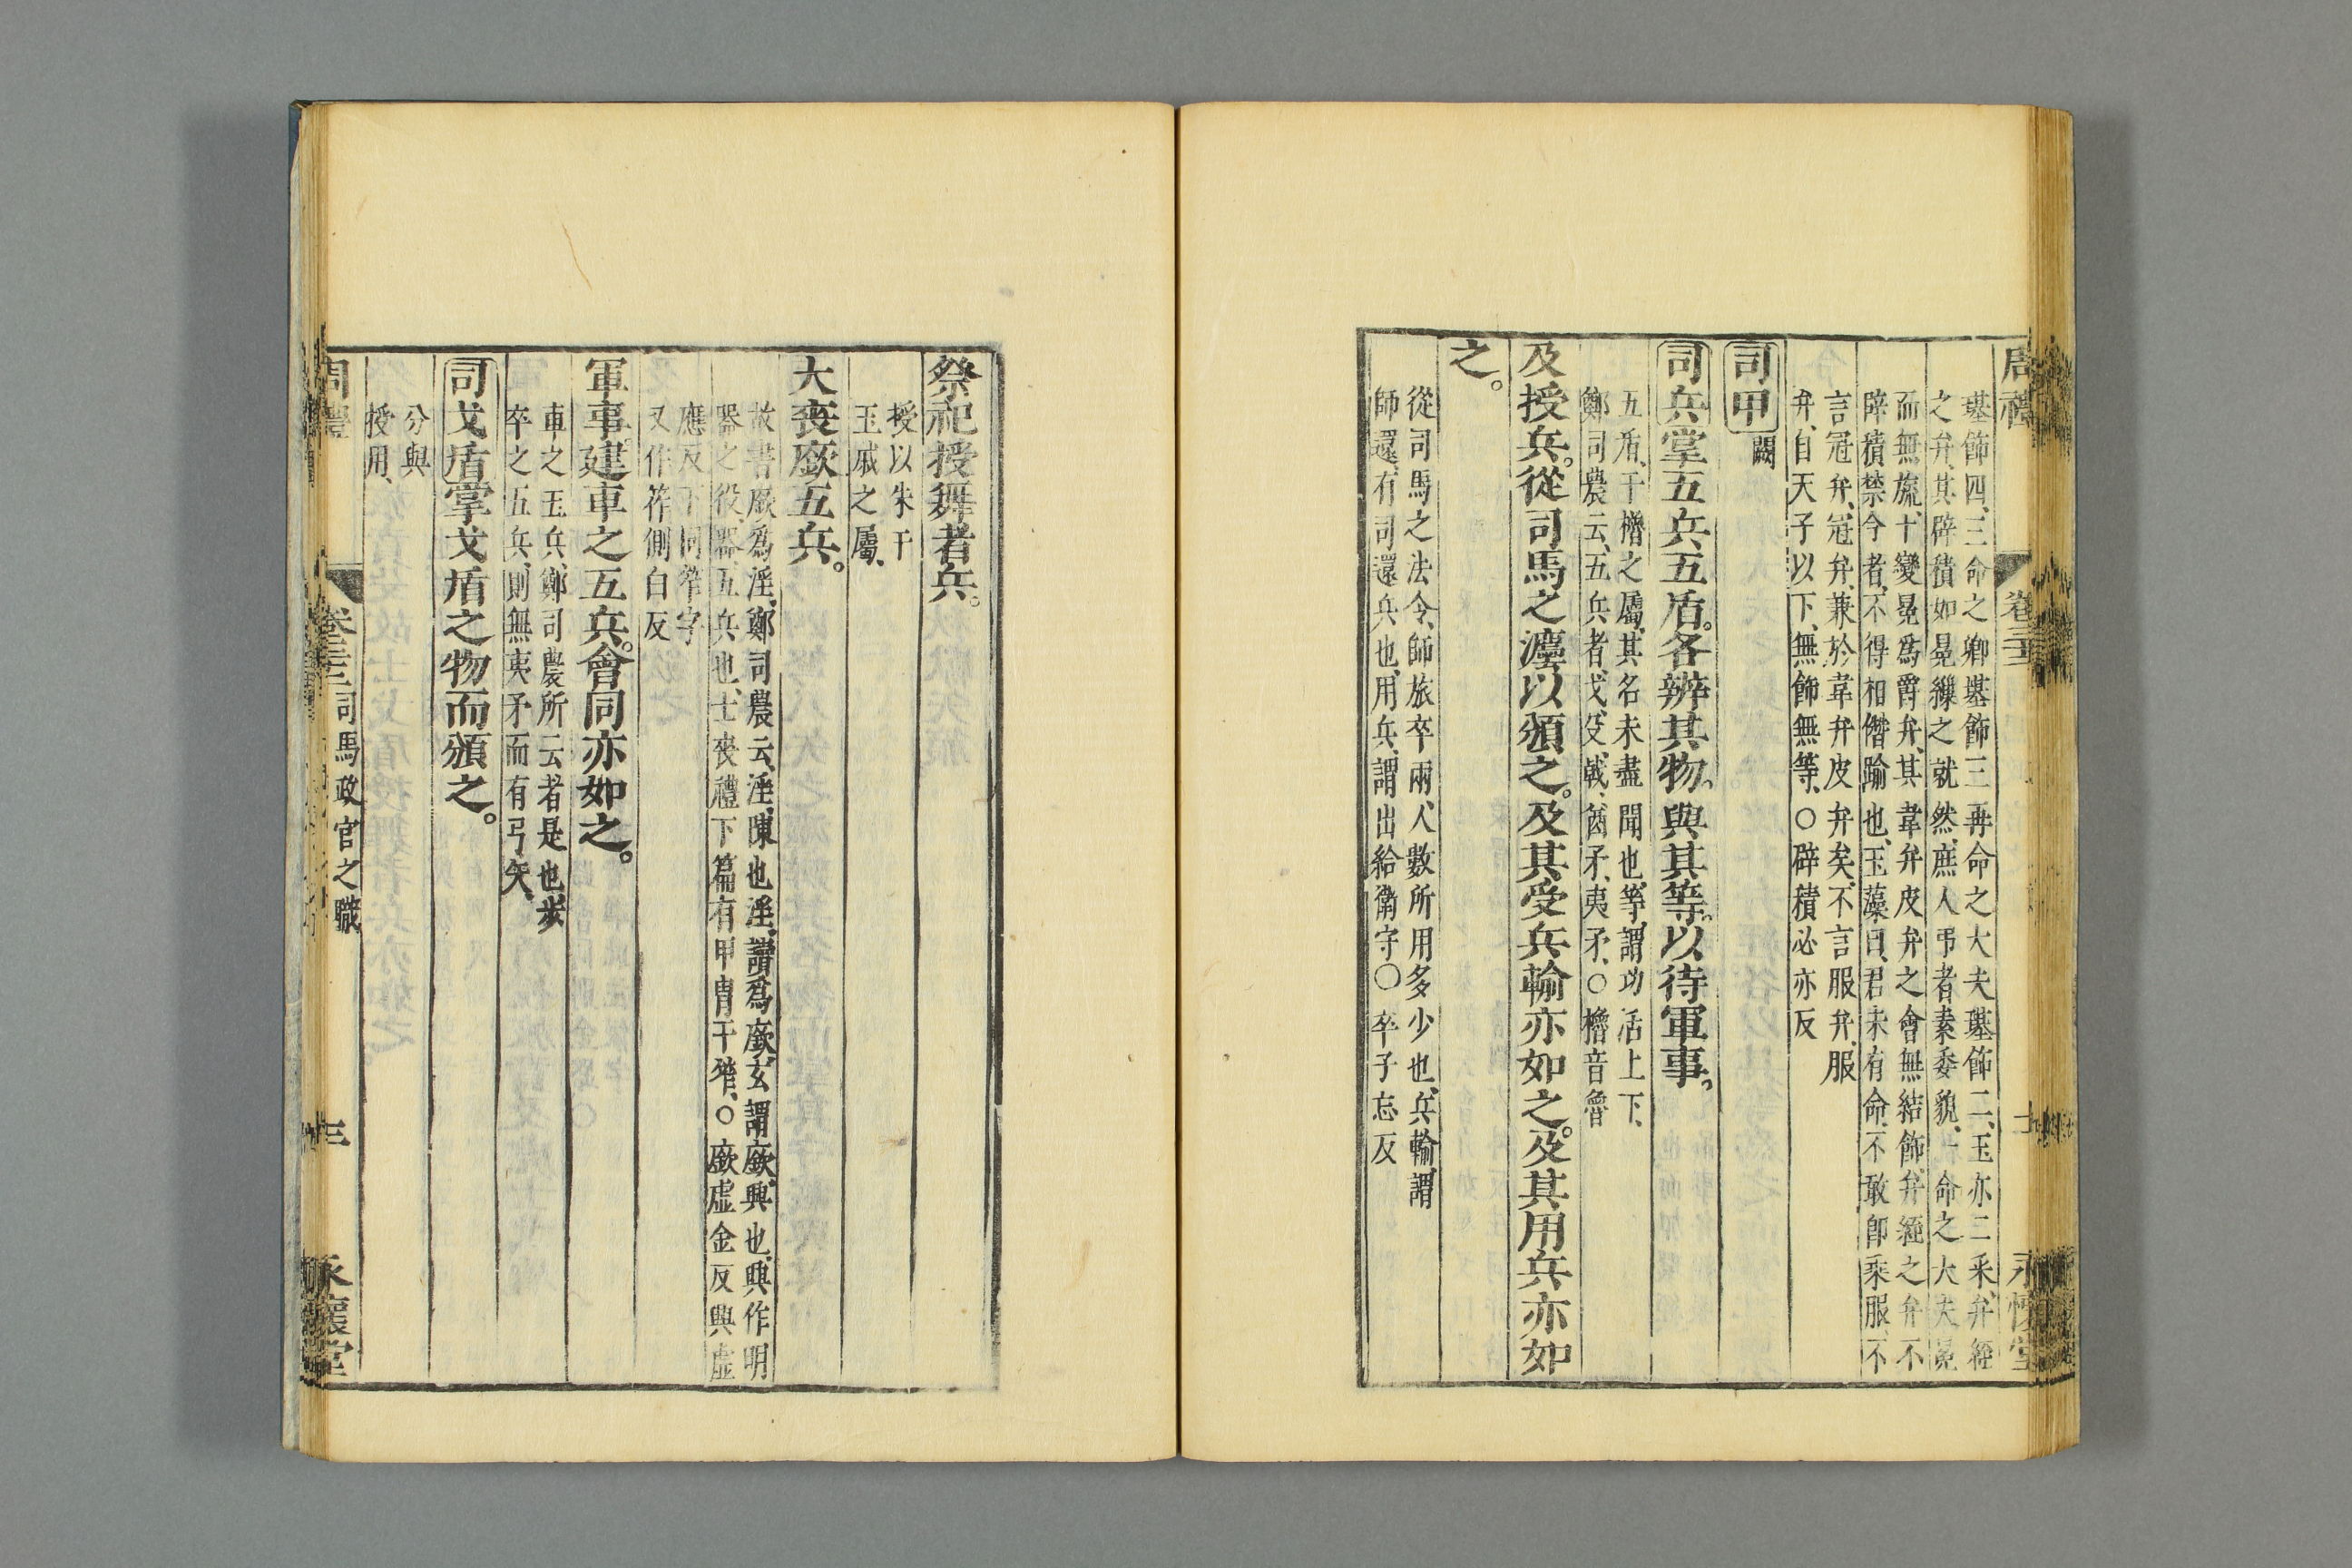 周禮 卷三十二 十二 永懷堂
璂飾四、三命之卿璂飾三、再命之大夫璂飾二、玉亦二采、弁絰
之弁、其辟積如冕繅之就然、庶人弔者素委貌、一命之大夫冕
而無旒、士變冕爲爵弁、其韋弁皮弁之會無結飾、弁絰之弁不
辟積、禁令者、不得相僭踰也、玉藻曰、君未有命、不敢卽乘服、不
言冠弁、冠弁、兼於韋弁皮弁矣、不言服弁、服
弁、自天子以下、無飾無等、○辟積必亦反
司甲闕
司兵掌五兵五盾。各辨其物。與其等。以待軍事。
五盾、干櫓之屬、其名未盡聞也、等、謂功沽上下、
鄭司農云、五兵者、戈、殳、戟、酋矛、夷矛、○櫓音魯
及授兵。從司馬之灋以頒之。及其受兵輸亦如之。及其用兵亦如
之。
從司馬之法令、師旅卒兩人數所用多少也、兵輸、謂
師還、有司還兵也、用兵、謂出給衞守○卒子忽反
祭祀授舞者兵。
授以朱干
玉戚之屬、
大喪廞五兵。
故書廞爲淫、鄭司農云、淫、陳也、淫、讀爲廞、玄謂廞、興也、興作明
器之役器、五兵也、士喪禮下篇有甲冑干笮、○廞虛金反興虛
應反下同笮字
又作筰側白反
軍事建車之五兵。會同亦如之。
車之五兵、鄭司農所云者是也、步
卒之五兵、則無夷矛而有弓矢、
司戈盾掌戈盾之物而頒之。
分與
授用、
周禮 卷三十二 司馬政官之職 十三 永懷堂